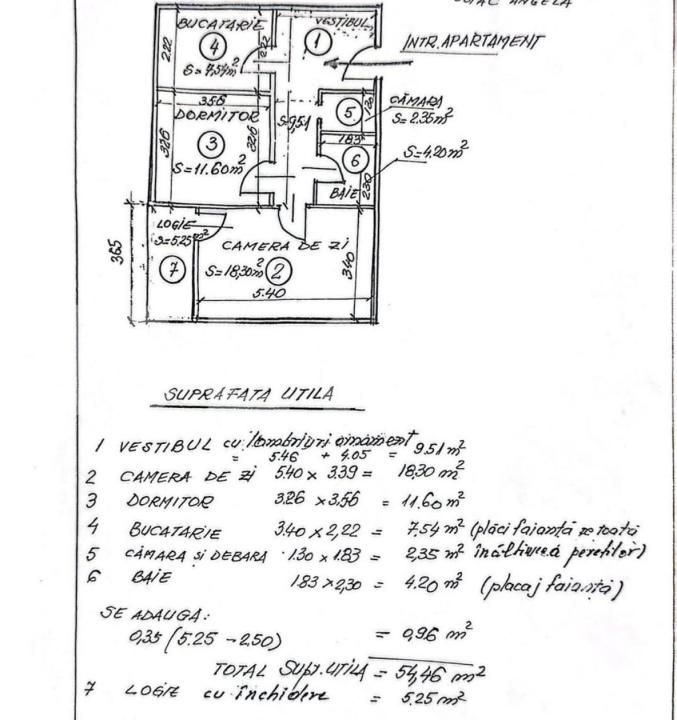 ANGELA
BUCATARIE
4
S=7.54m²
2,22
2,22
VESTIBUL
1
INTR. APARTAMENT
3.56
DORMITOR
3
S=11.60m²
3.26
3.26
S=9,51
5
CĂMARA
S=2.35m²
1.83
6
S=4.20m²
BAIE
2.30
LOGIE
S=5.25m²
7
365
CAMERA DE ZI
S=18,30m² 2
5.40
3.40
SUPRAFATA UTILA
1 VESTIBUL cu lambriuri ornament = 9.51 m²
= 5.46 + 4.05
2 CAMERA DE ZI 5.40 x 3.39 = 18,30 m²
3 DORMITOR 3.26 x 3,56 = 11.60 m²
4 BUCATARIE 3.40 x 2,22 = 7.54 m² (plăci faianță pe toată
5 CĂMARA și DEBARA 1.30 x 1.83 = 2,35 m² înălțimea pereților)
6 BAIE 1.83 x 2,30 = 4.20 m² (placaj faianță)
SE ADAUGA:
0,35 (5.25 - 2.50) = 0,96 m²
TOTAL Supr. UTILA = 54,46 m²
7 LOGIE cu închidere = 5.25 m²